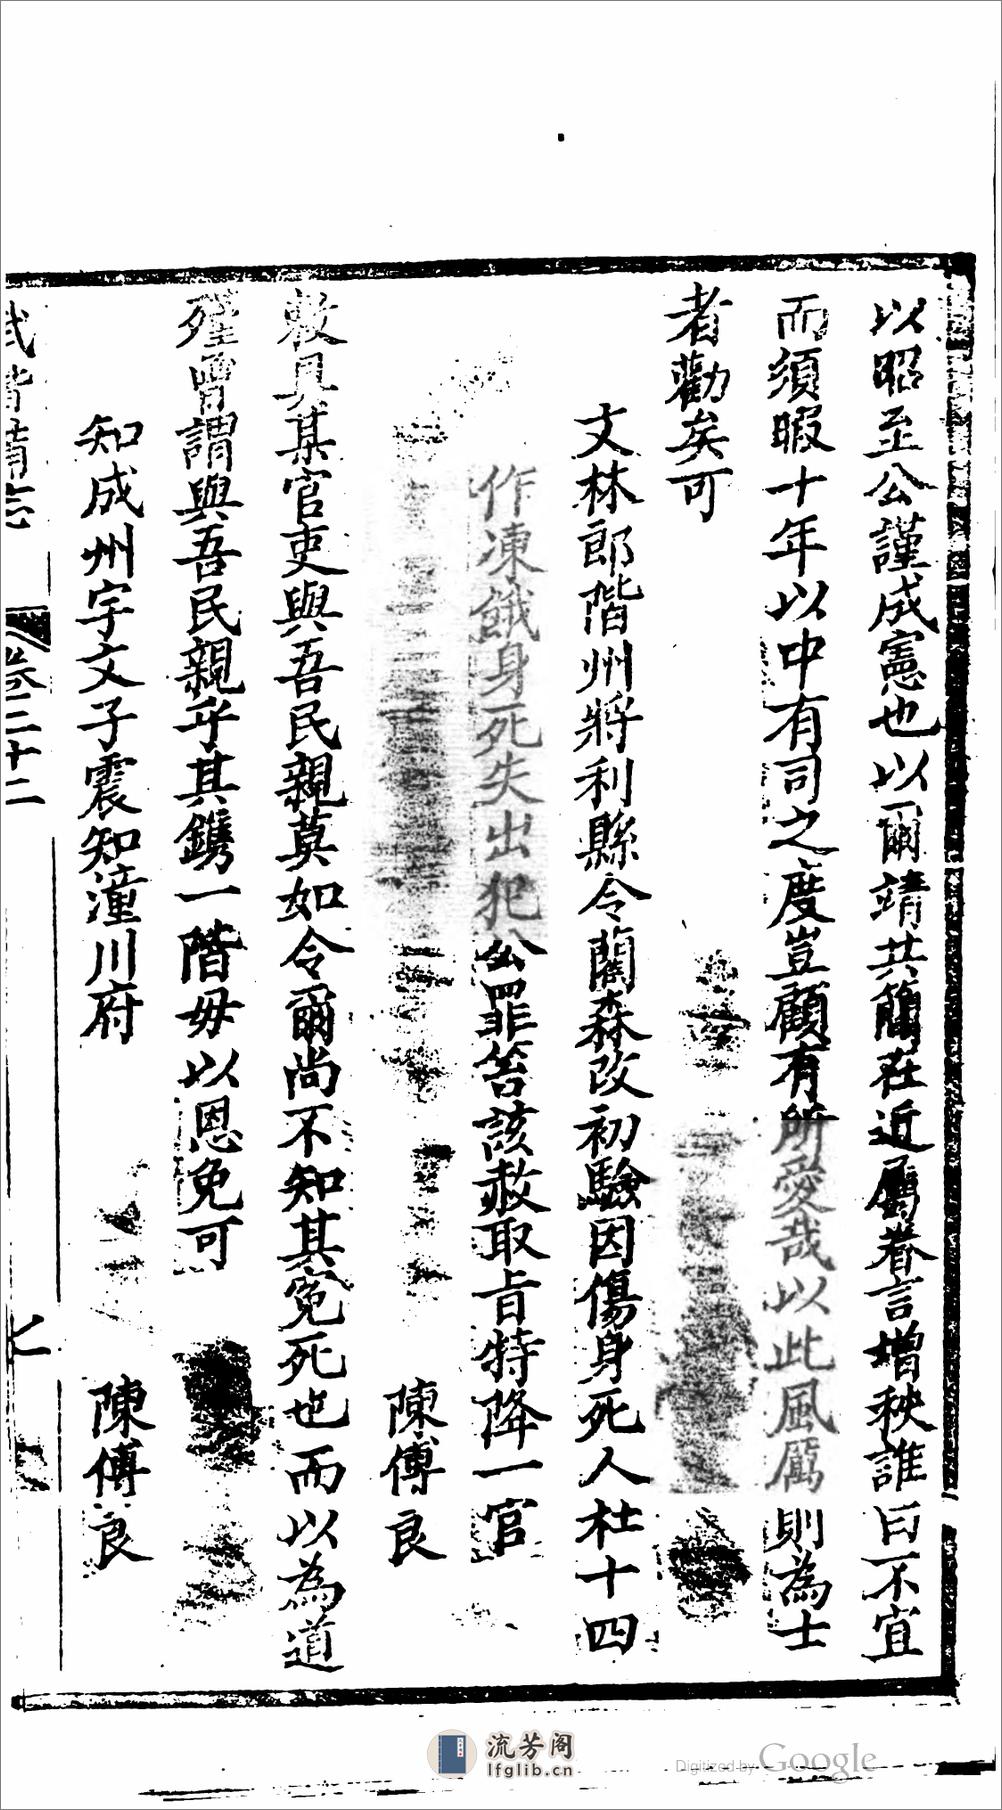 以昭至公謹成憲也以爾靖共簡在近屬眷言增秩誰曰不宜
而須暇十年以中有司之度豈顧有所愛哉以此風厲則為士
者勸矣可
文林郎階州將利縣令藺森改初驗因傷身死人杜十四
作凍餓身死失出犯公罪笞該赦取旨特降一官
陳傅良
敕具某官吏與吾民親莫如令爾尚不知其冤死也而以為道
殣曾謂與吾民親乎其鐫一階毋以恩免可
知成州宇文子震知潼川府
陳傅良
武階備志
卷二十二
七
流芳阁
lfglib.cn
Digitized by Google